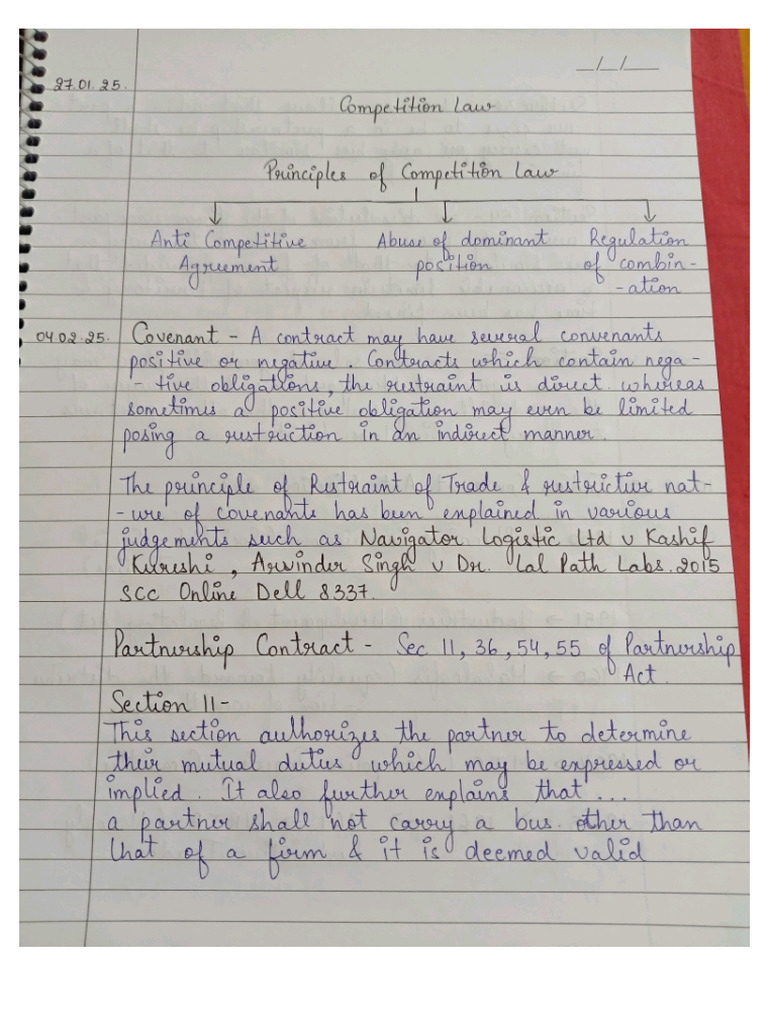 __/__/____
27.01.25.
Competition Law
Principles of Competition Law
Anti Competitive Agreement
Abuse of dominant position
Regulation of combin-
-ation
04.02.25. Covenant - A contract may have several convenants
positive or negative. Contracts which contain nega-
-tive obligations, the restraint is direct whereas
sometimes a positive obligation may even be limited
posing a restriction in an indirect manner.
The principle of Restraint of Trade & restrictive nat-
-ure of covenants has been explained in various
judgements such as Navigator Logistic Ltd v Kashif
Kureshi, Arvinder Singh v Dr. Lal Path Labs. 2015
SCC Online Dell 8337.
Partnership Contract - Sec 11, 36, 54, 55 of Partnership
Act.
Section 11-
This section authorizes the partner to determine
their mutual duties which may be expressed or
implied. It also further explains that ...
a partner shall not carry a bus. other than
that of a firm & it is deemed valid